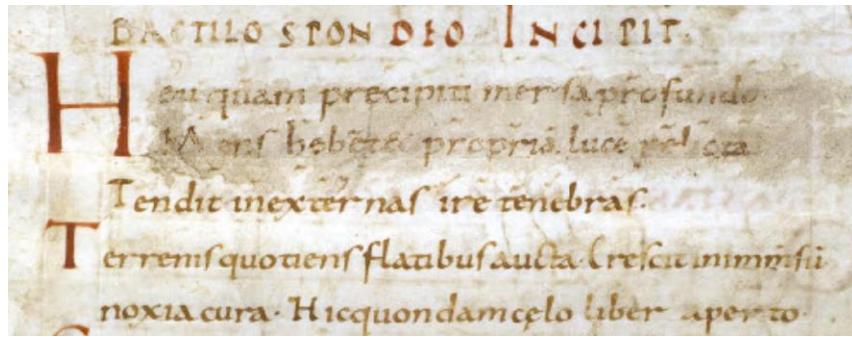 DACTILO SPONDEO INCIPIT.
Heu quam precipiti mersa profundo
Mens hebet et propria luce relicta
Tendit inexternas ire tenebras.
Terrenis quotiens flatibus aucta. Crescit
noxia cura. Hic quondam cęlo liber aperto.